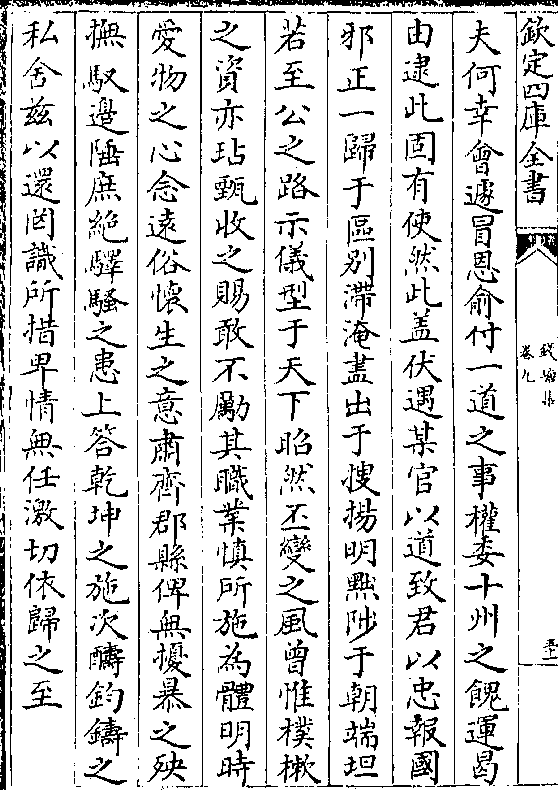 欽定四庫全書
卷九
夫何幸會遽冒恩俞付一道之事權委十州之餽運曷
由逮此固有使然此盖伏遇某官以道致君以忠報國
邪正一歸于區别滯淹盡出于搜揚明黜陟于朝端坦
若至公之路示儀型于天下昭然丕變之風曾惟樸樕
之資亦玷甄收之賜敢不勵其職業慎所施為體明時
愛物之心念遠俗懷生之意肅齊郡縣俾無擾暴之殃
撫馭邉陲庶絶驛騷之患上答乾坤之施次醻鈞鑄之
私舍兹以還罔識所措卑情無任激切依歸之至